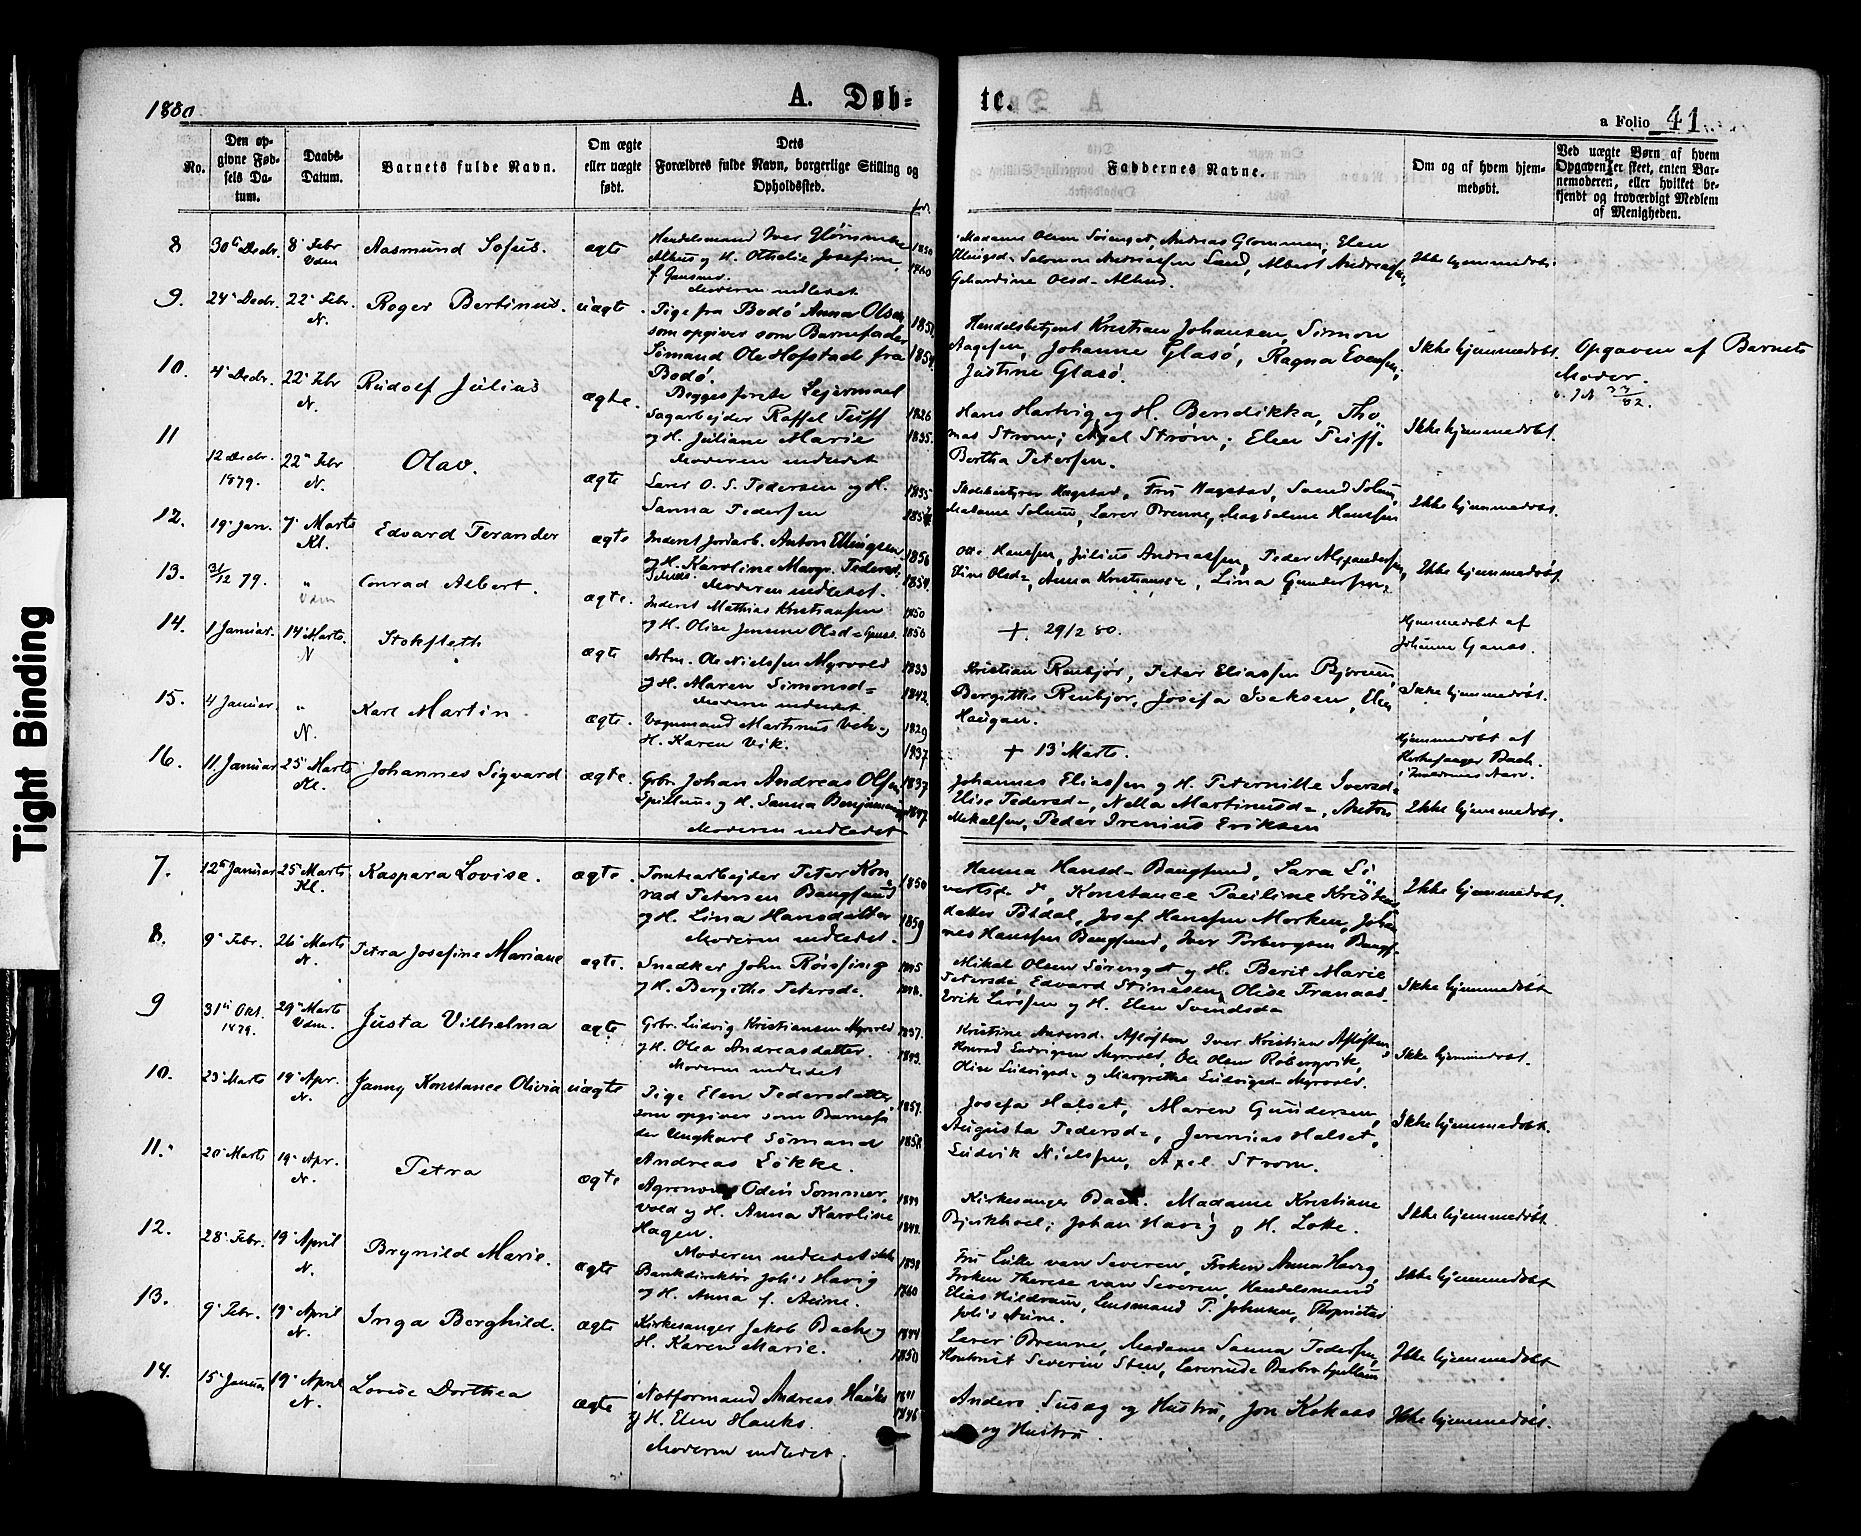 1880.
A. Døb=
te.
a Folio 41
No.
Den op-
givne Fød-
sels Da-
tum.
Daabs-
Datum.
Barnets fulde Navn.
Om ægte
eller uægte
født.
Dets
Forældres fulde Navn, borgerlige Stilling og
Opholdssted.
Faddernes Navne.
Om og af hvem hjem-
medøbt.
Ved uægte Børn af hvem
Opgaven er skeet, enten Bar-
nemoderen, eller hvilket be-
kjendt og troværdigt Medlem
af Menigheden.
Tight Binding
8 30te Decbr. 8 Febr Aasmund Sofus. ægte
Handelsmand Iver
og H. Othelie Josefine
Moderen indledet
1850
1860
Madame Olsen Sørenget, Andreas Glommen, Elen
Ellingsd= Salomon Andreassen Sand, Albert Andreassen,
Gehardine Olsd=
Ikke hjemmedøbt.
9. 24 Decbr. 22 Febr. N. Roger Bertinus. uægte.
Pige fra Bodø Anna Olsen
som opgiver som Barnefader
Sømand Ole Hofstad fra
Bodø.
Begges første Lejermaal
1854.
Handelsbetjent Kristian Johansen, Simon
Aagesen, Johanne Glasø, Ragna Evensen,
Justine Glasø.
Ikke hjemmedøbt.
Opgaven af Barnets
Moder.
10. 4 Decbr. 22 Febr N. Rudolf Julius ægte.
Sagarbejder Raffel Tuff
og H. Juliane Marie
Moderen indledet
1826
1835.
Hans Hartvig og H. Bendikka, Tho-
mas Strøm; Axel Strøm; Elen Tuff.
Bertha Petersen.
Ikke hjemmedøbt.
11 12 Decbr. 1879. 22 Febr N. Olav. ægte
Lærer O. S. Pedersen og H.
Sanna Pedersen
1855
Hagstad, Fru Hagstad, Svend Solum,
Madame Solum, Lærer Brenne, Magdalene Hanssen
Ikke hjemmedøbt.
12. 19 Jan. 7 Marts Kl. Edvard Ferander ægte
Inderst Jordarb. Anton Ellingsen
og H. Karoline Margr. Pedersd.
Moderen indledet.
1856
1854.
Otto Hanssen, Julius Andreassen, Peder Alexandersen,
Stine Olsd=, Anna Kristiansd=, Lina Gundersen,
Ikke hjemmedøbt.
13. 31/12 79. " Conrad Albert. ægte.
Inderst Mathias Kristiansen
og H. Olise Jensine Olsd=
1850
1856
+. 29/2 80.
Hjemmedøbt af
Johanne Ganss.
14. 1 Januar. 14 Marts. N Stokfleth ægte
Arbm. Ole Nielssen Myrvold
og H. Maren Simonsd=
Moderen indledet.
1833
1842.
Kristian Renbjør, Peter Eliassen Bjørum,
Bergitte Renbjør, Josefa Isaksen, Elen
Haugan.
Ikke hjemmedøbt.
15. 4 Januar. " N. Karl Martin. ægte.
Vognmand Martinus Vik og
H. Karen Vik.
1829
1837
+ 13 Marts
Hjemmedøbt af
Kirkesanger Bach.
16. 11 Januar 25 Marts Kl. Johannes Sigvard ægte.
Gbr. Johan Andreas Olsen
Spillum og H. Sanna Benjaminsd
Moderen indledet
1837
1847.
Johannes Eliassen og H. Peternille Iversd=
Elise Pedersd=, Nella Martinusd=, Anton
Mikalsen, Peder Irenius Eriksen
Ikke hjemmedøbt.
7. 12te Januar 25 Marts Kl. Kaspara Lovise. ægte.
Tomtearbejder Peter Kon
rad Petersen Bangsund
og H. Lina Hansdatter
Moderen indledet.
1850
1859
Hanna Hansd= Bangsund, Sara Si
vertsd= do, Konstance Pauline Kristens
datter Bødal, Josef Hanssen Morken, Johan
nes Hanssen Bangsund, Iver Torbergsen Bangs.
Ikke hjemmedøbt.
8. 9 Febr. 26 Marts N. Petra Josefine Mariane ægte.
Snedker John Røising
og H. Bergitte Petersd=.
Mikal Olsen Sørenget og H. Berit Marie
Petersd=, Edvard Stinesen, Olise Tranaas.
Erik Larssen og H. Elen Svendsd=
Ikke hjemmedøbt
9 31te Okt. 1879. 29 Marts Justa Vilhelmina ægte
Gbr. Ludvig Kristiansen Myrvold
og H. Olea Andreasdatter.
Moderen indledet
1837.
1843.
Kristine Andersd. Asfloften Iver Kristian Asfloften
Konrad Ludvigsen Myrvold, Ole Olsen Røbergvik,
Oline Ludvigsd= og Margrethe Ludvigsd= Myrvold.
Ikke hjemmedøbt.
10. 23 Marts 19 Apr. N. Janny Konstance Olivia uægte
Pige Elen Pedersdatter,
som opgiver som Barnefa
der Ungkarl Sømand
Andreas Løkke.
1857.
1858.
Josefa Halset, Maren Gundersen,
Augusta Pedersd=, Jeremias Halset,
Ludvik Nielssen, Axel Strøm.
Ikke hjemmedøbt.
11. 20 Marts 19 Apr. N. Petra ægte
Agronom Odin Sommer
vold og H. Anna Karoline
Hagen.
Moderen indledet ikke
1844
1848.
Kirkesanger Bach. Madame Kristiane
Bjerkhoel; Johan Havig og H. Lotte.
Ikke hjemmedøbt.
12. 28 Febr. 19 April N. Brynild Marie. ægte
Bankdirektør Johs Havig
og H. Anna f. Aune.
1838
1860
Fru Lutke van Severen, Frøken Anna Havig,
Frøken Therese van Severen, Handelsmand
Elias Hildrum, Lensmand P. Johnsen, Proprietær
Johs Aune.
Ikke hjemmedøbt
13. 9 Febr. 19 April N. Inga Borghild. ægte
Kirkesanger Jakob Bach og
H. Karen Marie.
1844
1850
Lærer Brenne, Madame Sanna Pedersen,
Severin Sten, Lærerinde Barbro Spillum
Ikke hjemmedøbt
14. 15 Januar 19 April N. Lovise Dorthea ægte
Notformand Andreas Hauks
og H. Elen Hauks.
Moderen indledet.
1841
1846
Anders Susag og Hustru, Jon Kokaas
og Hustru.
Ikke hjemmedøbt.